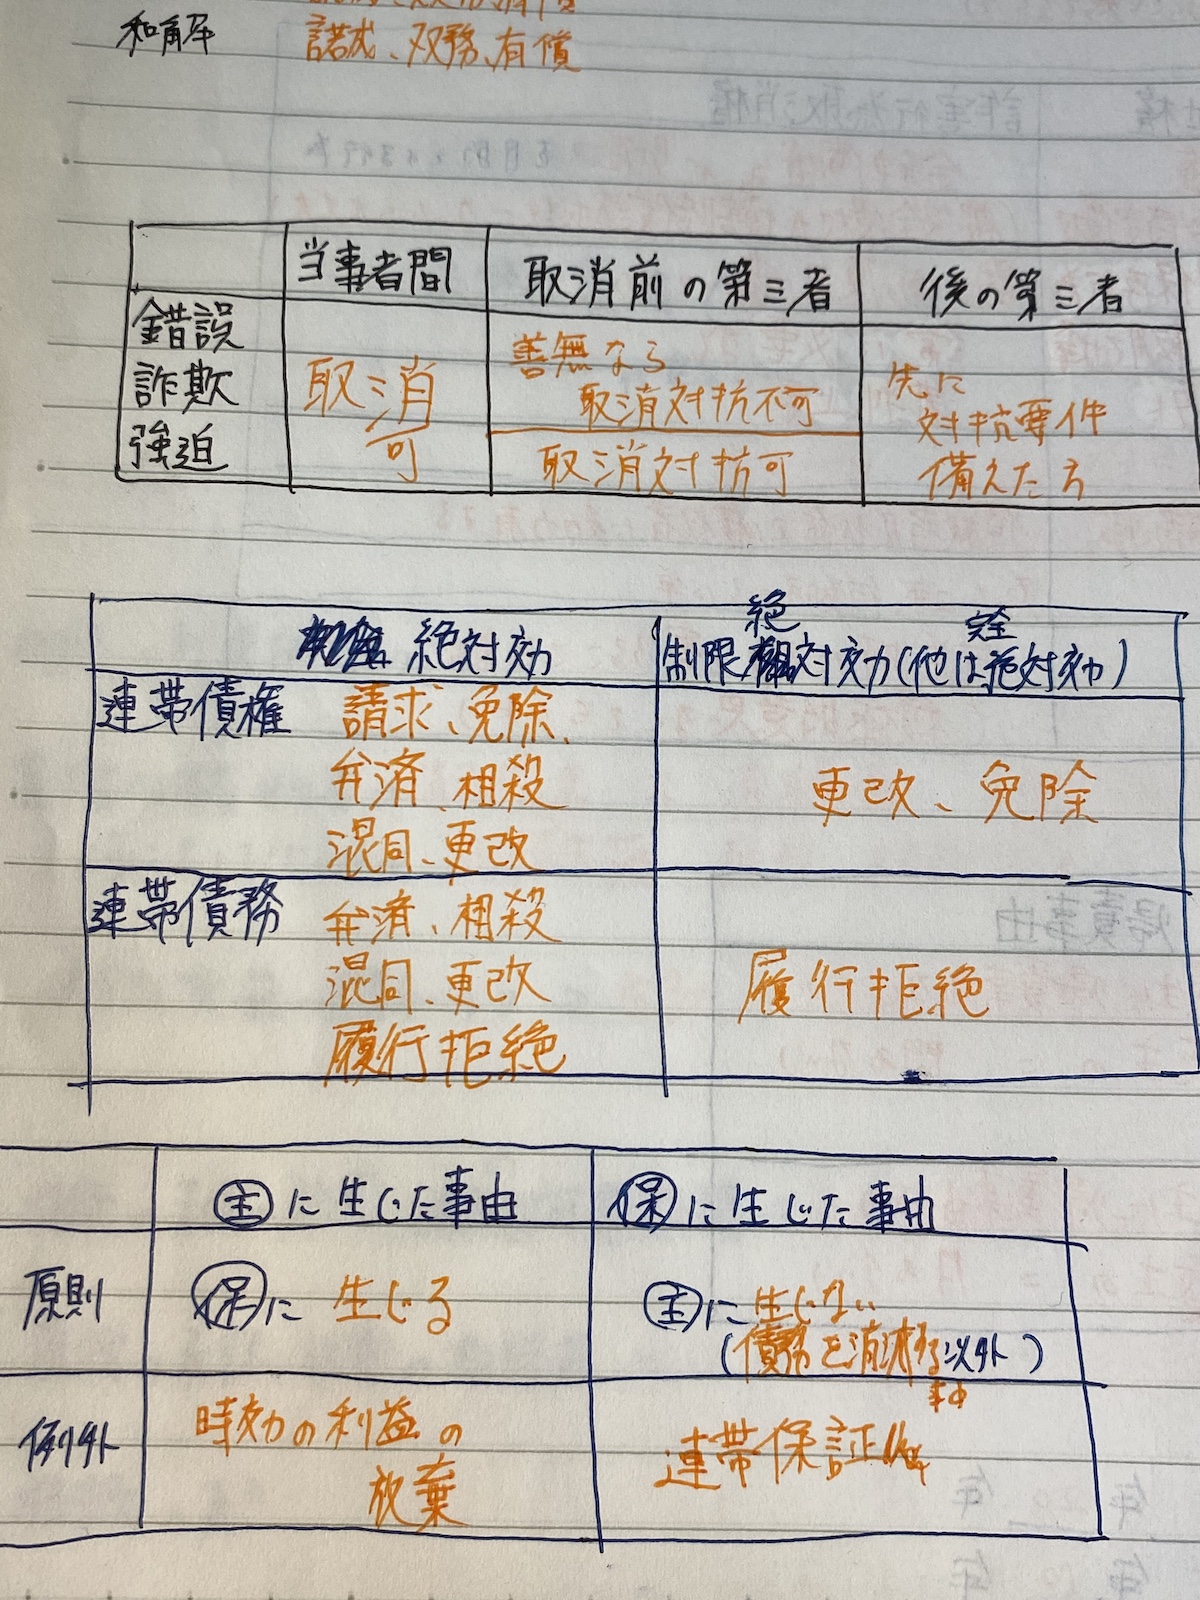 和解 諾成、双務、有償
当事者間 取消前の第三者 後の第三者
錯誤
詐欺
強迫
取消
可
善無なら
取消対抗不可
取消対抗可
先に
対抗要件
備えた方
絶対効
絶 完全
制限 対効(他は絶対効)
連帯債権 請求、免除、
弁済、相殺
混同、更改
更改、免除
連帯債務 弁済、相殺
混同、更改
履行拒絶
履行拒絶
主に生じた事由 保に生じた事由
原則 保に生じる
主に生じない
(債務を消滅する以外)
事由
例外 時効の利益の
放棄
連帯保証